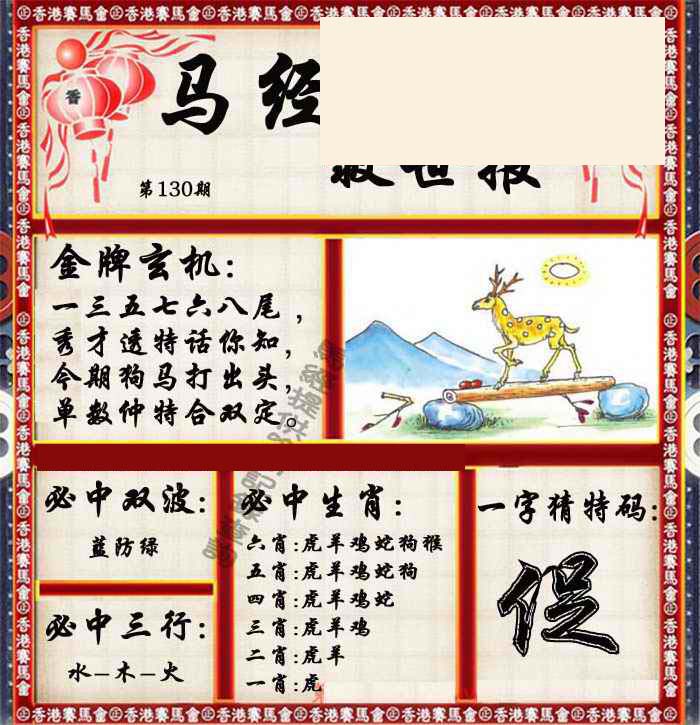 马经
救世报
第130期
金牌玄机:
一三五七六八尾，
秀才透特话你知，
今期狗马打出头，
单数仲特合双定。
必中双波:
蓝防绿
必中三行:
水–木–火
必中生肖:
六肖:虎羊鸡蛇狗猴
五肖:虎羊鸡蛇狗
四肖:虎羊鸡蛇
三肖:虎羊鸡
二肖:虎羊
一肖:虎
一字猜特码:
促
香港賽馬會
香